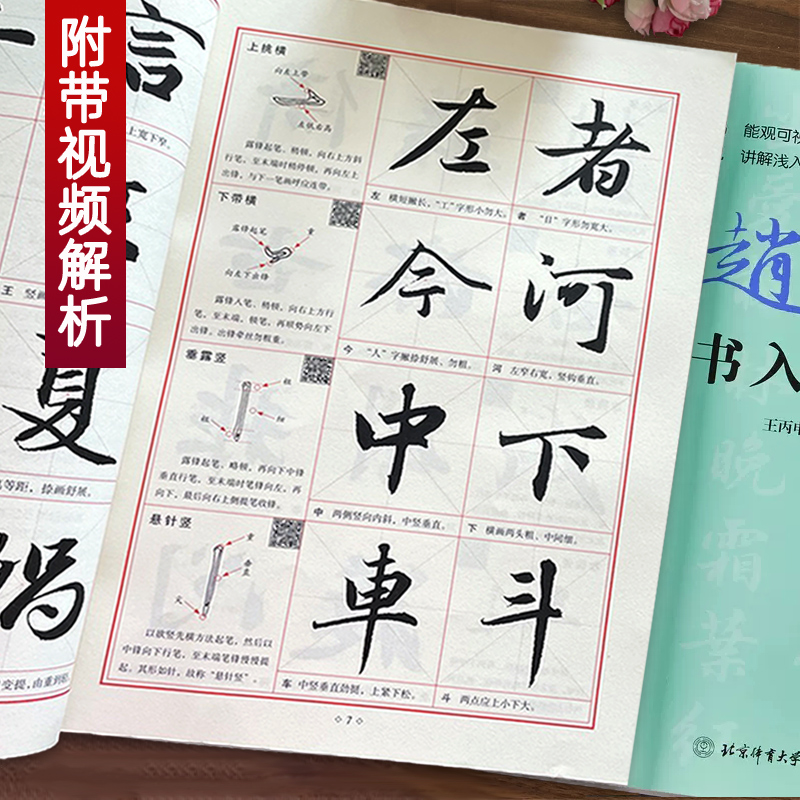 附带视频解析
信
上宽下窄。
王 竖画
夏
等距，捺画舒展。
变提，由重到轻
上挑横
向左上带
左低右高
露锋起笔、稍顿，向右上方斜
行笔，至末端时稍停顿，再向左上
出锋，与下一笔画呼应连带。
左
者
左 横短撇长，“工”字形小勿大。
者 “日”字形勿宽大。
下带横
露锋起笔
重
向左下出锋
露锋入笔、稍顿，向右上方行
笔，至末端，顿笔，再顺势向左下
出锋，出锋牵丝勿粗重。
今
河
今 “人”字撇捺舒展、勿粗。
河 左窄右宽，竖钩垂直。
垂露竖
粗
细
粗
露锋起笔、略顿，再向下中锋
垂直行笔，至末端时笔锋向左，再
向下，最后向右上侧提笔收锋。
中
下
中 两侧竖向内斜，中竖垂直。
下 横画两头粗、中间细。
悬针竖
重
垂直
尖
以欲竖先横方法起笔，然后以
中锋向下行笔，至末端笔锋慢慢提
起。其形如针，故称“悬针竖”。
車
斗
车 中竖垂直劲挺，上紧下松。
斗 两点应上小下大。
7
能观可视
讲解浅入
趙
书入
王丙申
晚
霜
葉
红
北京体育大学